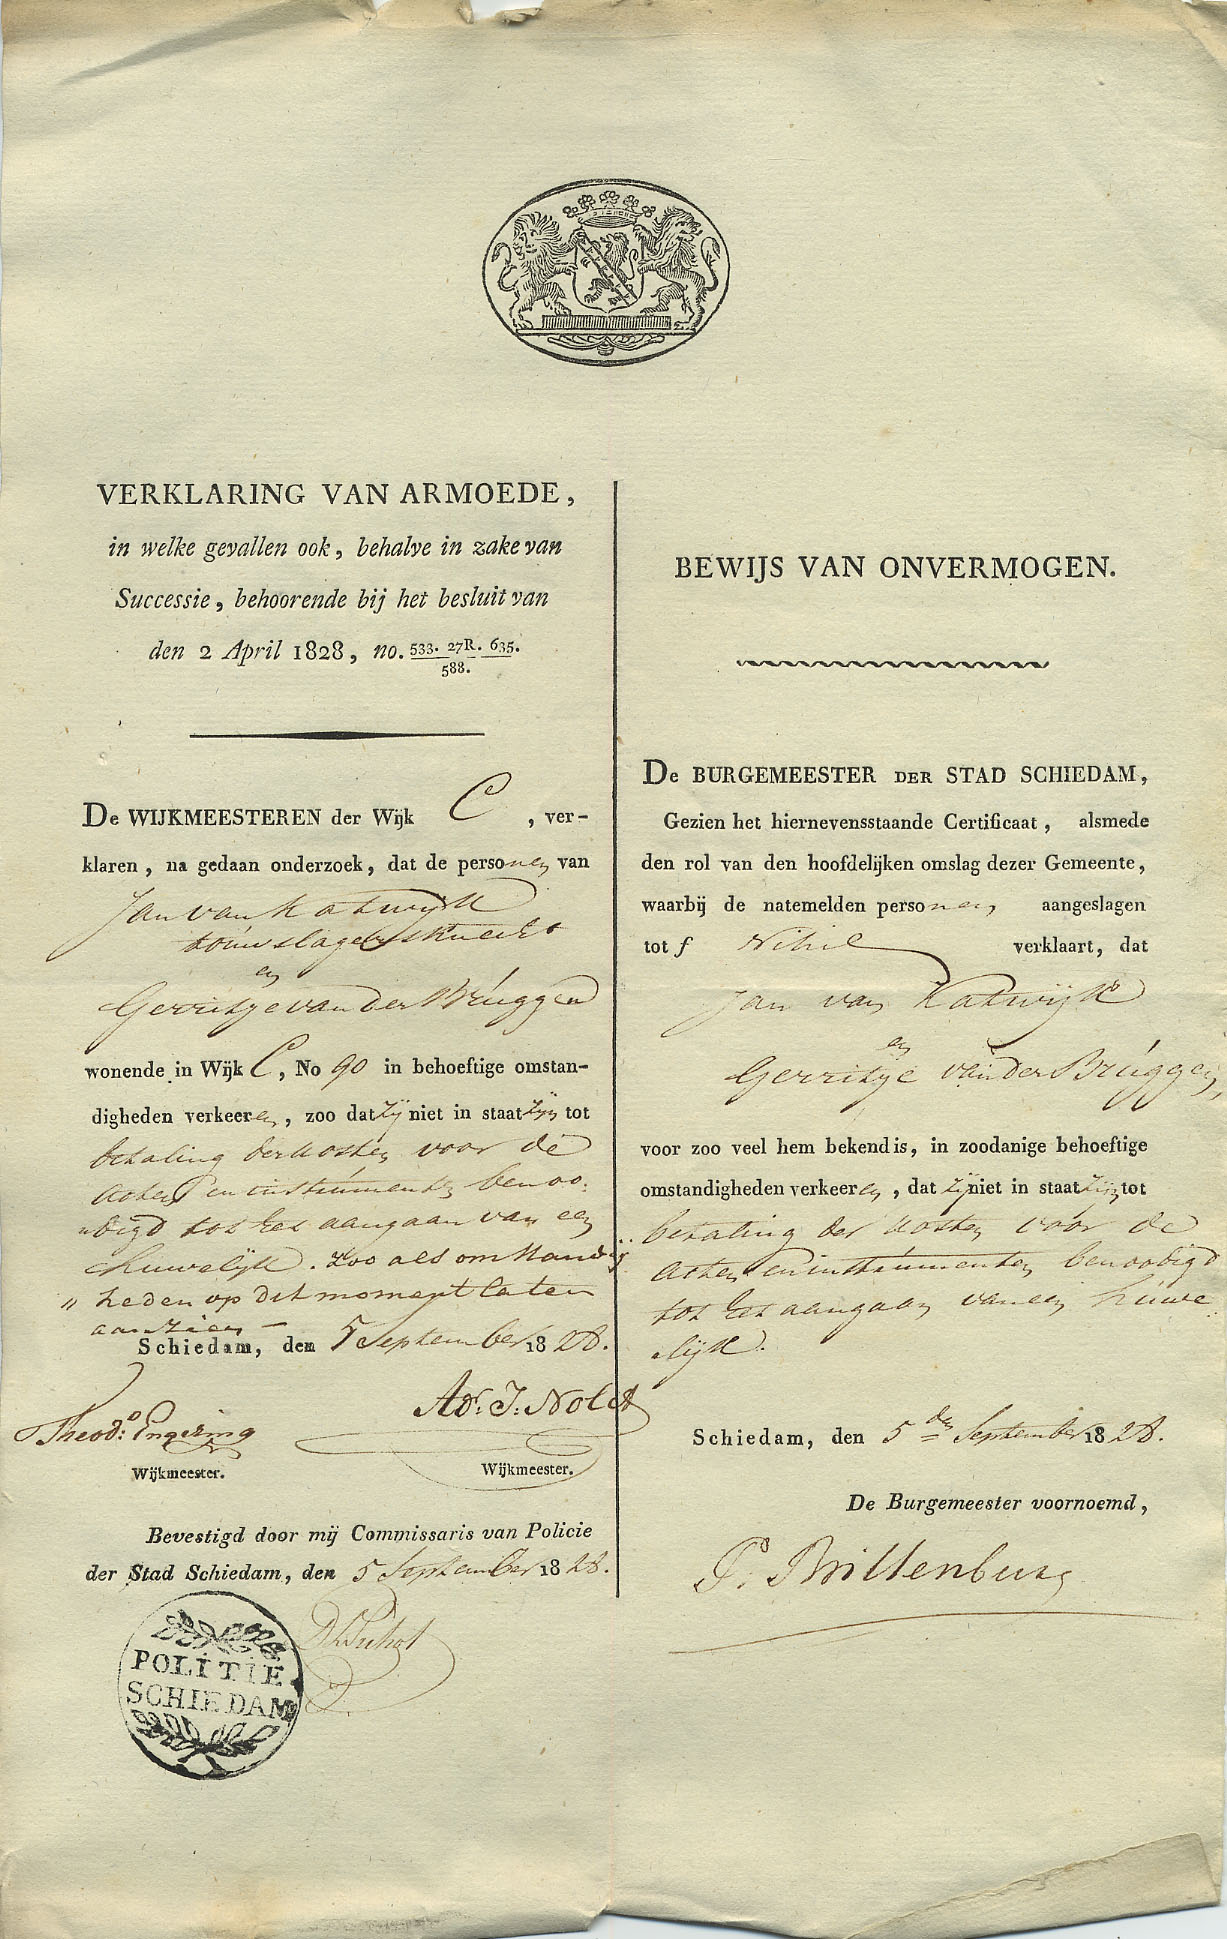 VERKLARING VAN ARMOEDE,
in welke gevallen ook, behalve in zake van
Successie, behoorende bij het besluit van
den 2 April 1828, no. 533. 27R. 635.
588.
De WIJKMEESTEREN der Wijk C, ver-
klaren, na gedaan onderzoek, dat de personen van
Jan van Katwijk
touwslagersknecht
en
Gerritje van der Brúggen
wonende in Wijk C, No 90 in behoeftige omstan-
digheden verkeeren, zoo dat zij niet in staat zijn tot
betaling der kosten voor de
acten en instrúmenten benoo-
digd tot het aangaan van een
huwelijk. zoo als omstandig
" heden op dit moment laten
aanzien —
Schiedam, den 5 September 1828.
Theod: Engering
Ad: J: Nolet
Wijkmeester.
Wijkmeester.
Bevestigd door mij Commissaris van Policie
der Stad Schiedam, den 5 September 1828.
POLITIE
SCHIEDAM
BEWIJS VAN ONVERMOGEN.
De BURGEMEESTER DER STAD SCHIEDAM,
Gezien het hiernevensstaande Certificaat, alsmede
den rol van den hoofdelijken omslag dezer Gemeente,
waarbij de natemelden personen, aangeslagen
tot f Nihil verklaart, dat
Jan van Katwijk
en
Gerritje van der Brúggen,
voor zoo veel hem bekend is, in zoodanige behoeftige
omstandigheden verkeeren, dat zij niet in staat zijn tot
betaling der kosten voor de
acten en instrúmenten benoodigd
tot het aangaan van een húwe
lijk.
Schiedam, den 5den September 1828.
De Burgemeester voornoemd,